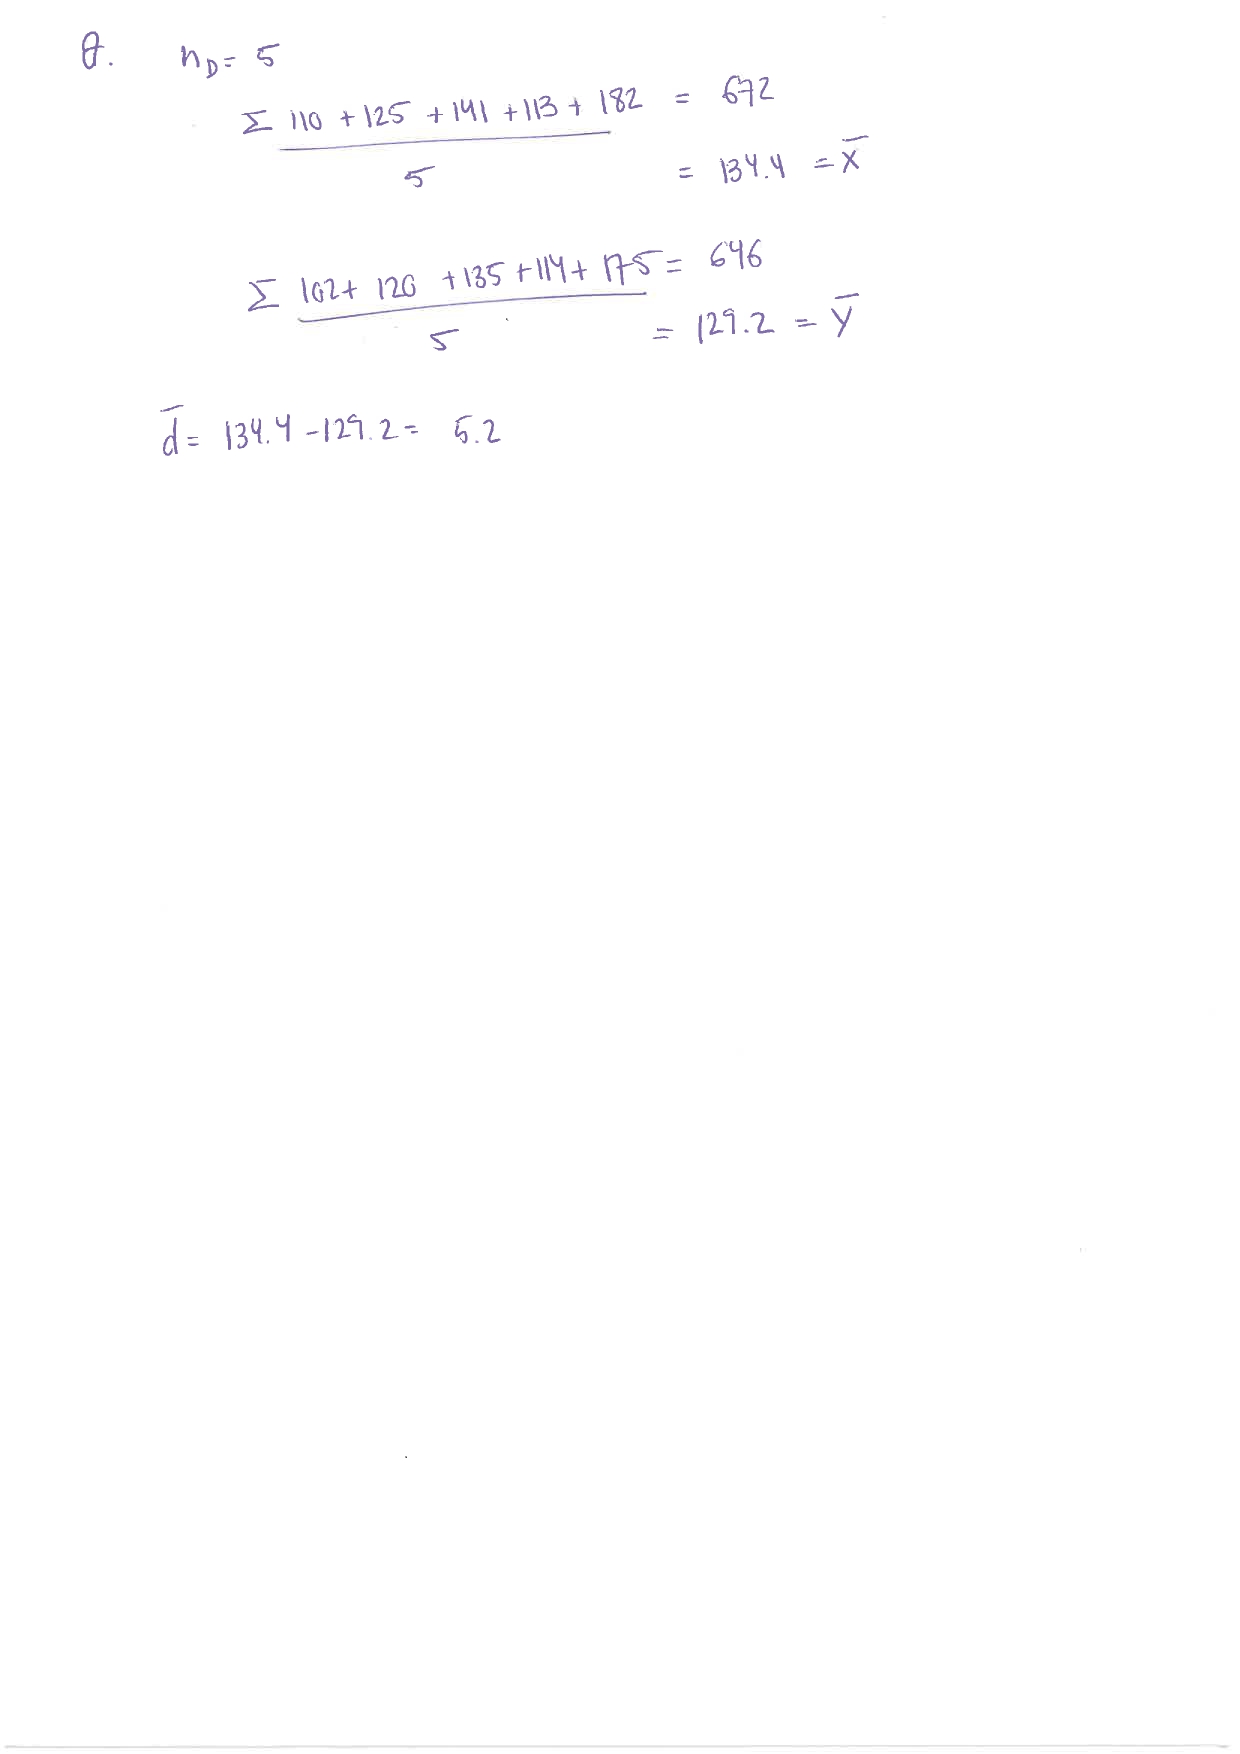 θ. n_D = 5
Σ 110 + 125 + 141 + 113 + 182 = 672
5 = 134.4 = x̄
Σ 102 + 120 + 135 + 114 + 175 = 646
5 = 129.2 = ȳ
d̄ = 134.4 - 129.2 = 5.2